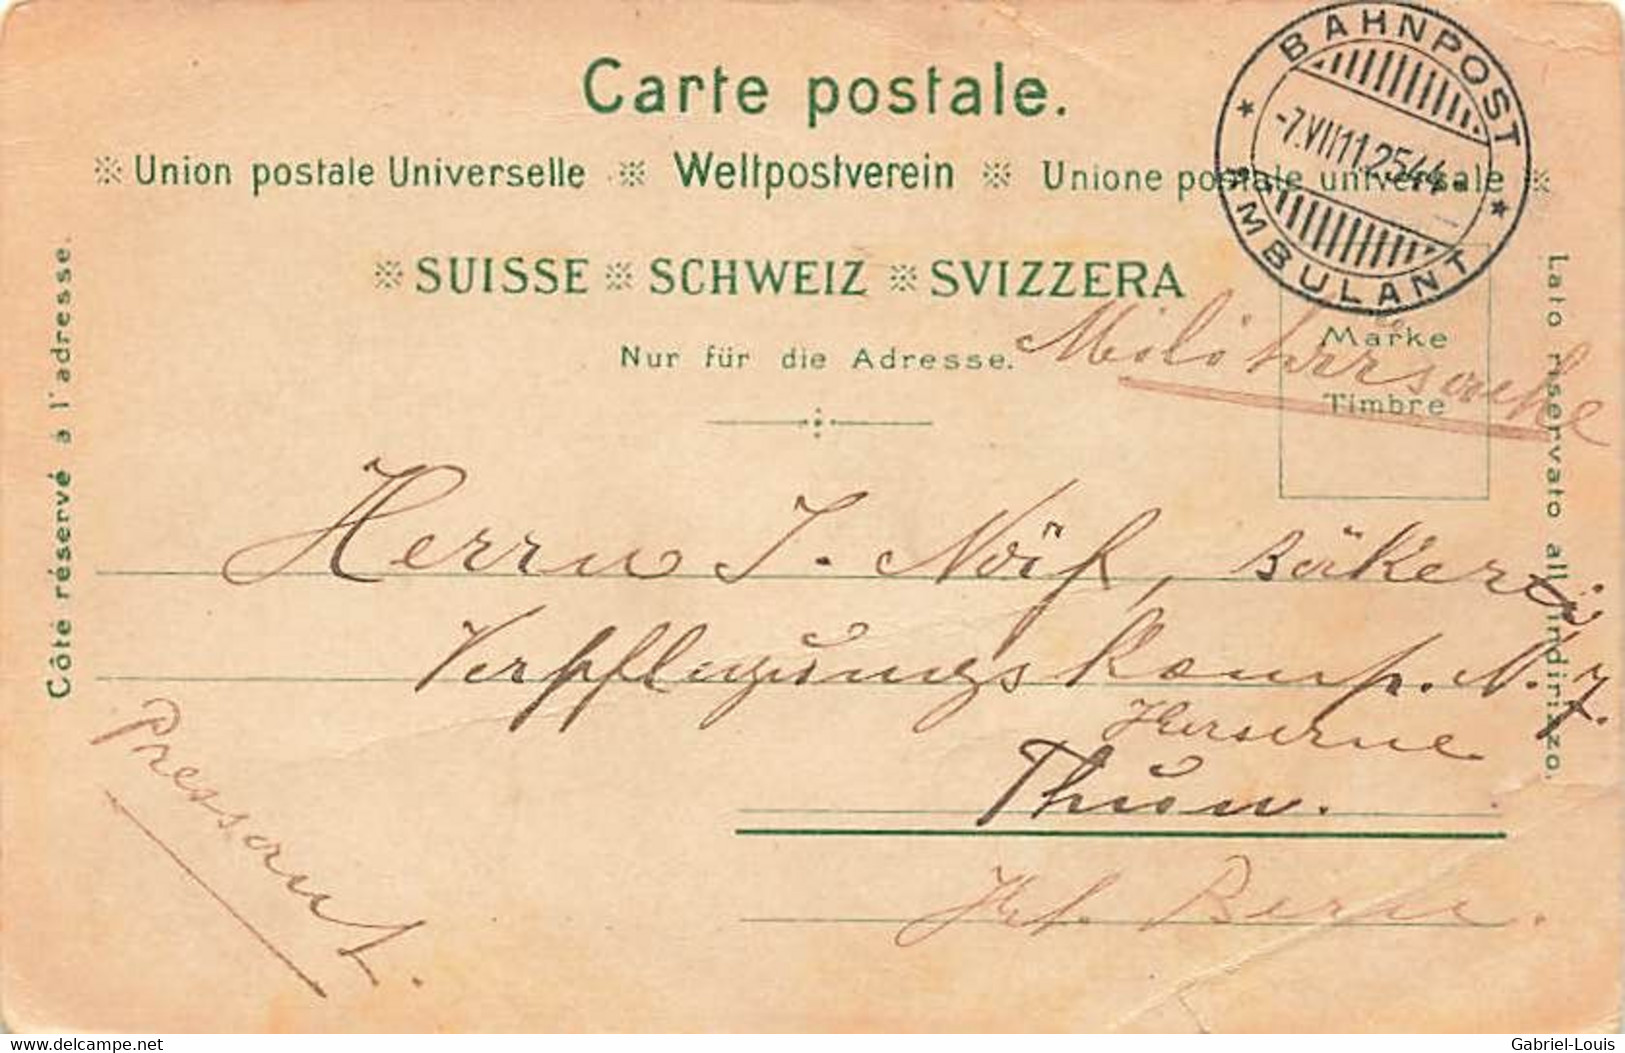 Carte postale.
Union postale Universelle Weltpostverein Unione postale universale
SUISSE SCHWEIZ SVIZZERA
Nur für die Adresse.
BAHNPOST
-7.VII11.2544.
AMBULANT
Militärsache
Marke
Timbre
Côté réservé à l'adresse.
Lato riservato all'indirizzo.
Herrn J. Bäckerei
Verpflegungs Komp. N. 7.
Thun.
Kt. Bern.
Pressant.
delcampe.net
Gabriel-Louis